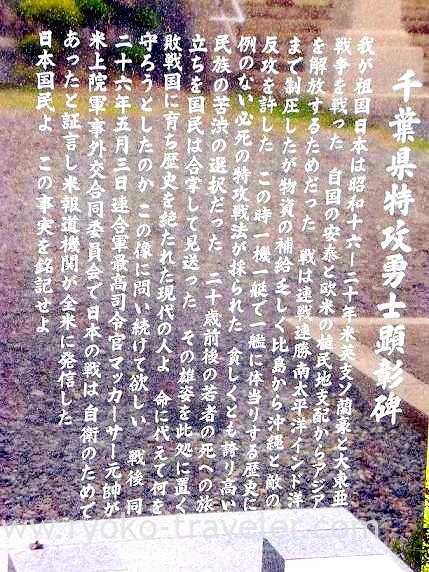 千葉県特攻勇士顕彰碑
我が祖国日本は昭和十六―二十年米英支ソ蘭豪と大東亜
戦争を戦った 自国の安泰と欧米の植民地支配からアジア
を解放するためだった 戦は連戦連勝南太平洋インド洋
まで制圧したが物資の補給乏しく比島から沖縄と敵の
反攻を許した この時一機一艇で一艦に体当りする歴史に
例のない必死の特攻戦法が採られた 貧しくとも誇り高い
民族の苦渋の選択だった 二十歳前後の若者の死への旅
立ちを国民は合掌して見送った その雄姿を此処に置く
敗戦国に育ち歴史を絶たれた現代の人よ 命に代えて何を
守ろうとしたのか この像に問い続けて欲しい 戦後 同
二十六年五月三日連合軍最高司令官マッカーサー元帥が
米上院軍事外交合同委員会で日本の戦は 自衛のためで
あったと証言し米報道機関が全米に発信した
日本国民よ この事実を銘記せよ
www.ryoko-traveler.com